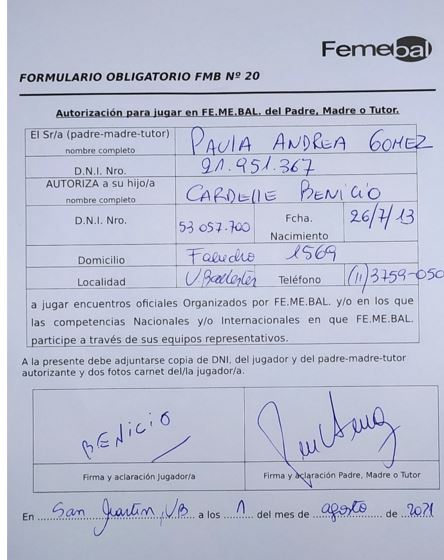 Femebal
FORMULARIO OBLIGATORIO FMB Nº 20
Autorización para jugar en FE.ME.BAL. del Padre, Madre o Tutor.
El Sr/a (padre-madre-tutor) PAULA ANDREA GOMEZ
nombre completo
D.N.I. Nro. 21.951.367
AUTORIZA a su hijo/a CARDELLE BENICIO
nombre completo
D.N.I. Nro. 53 057.700 Fcha. Nacimiento 26/7/13
Domicilio 1569
Localidad V. Ballester Teléfono (11)3759-050
a jugar encuentros oficiales Organizados por FE.ME.BAL. y/o en los que
las competencias Nacionales y/o Internacionales en que FE.ME.BAL.
participe a través de sus equipos representativos.
A la presente debe adjuntarse copia de DNI, del jugador y del padre-madre-tutor
autorizante y dos fotos carnet del/la jugador/a.
BENICIO
Firma y aclaración Jugador/a Firma y aclaración Padre, Madre o Tutor
En San Martin, VB a los 1 del mes de agosto de 2021